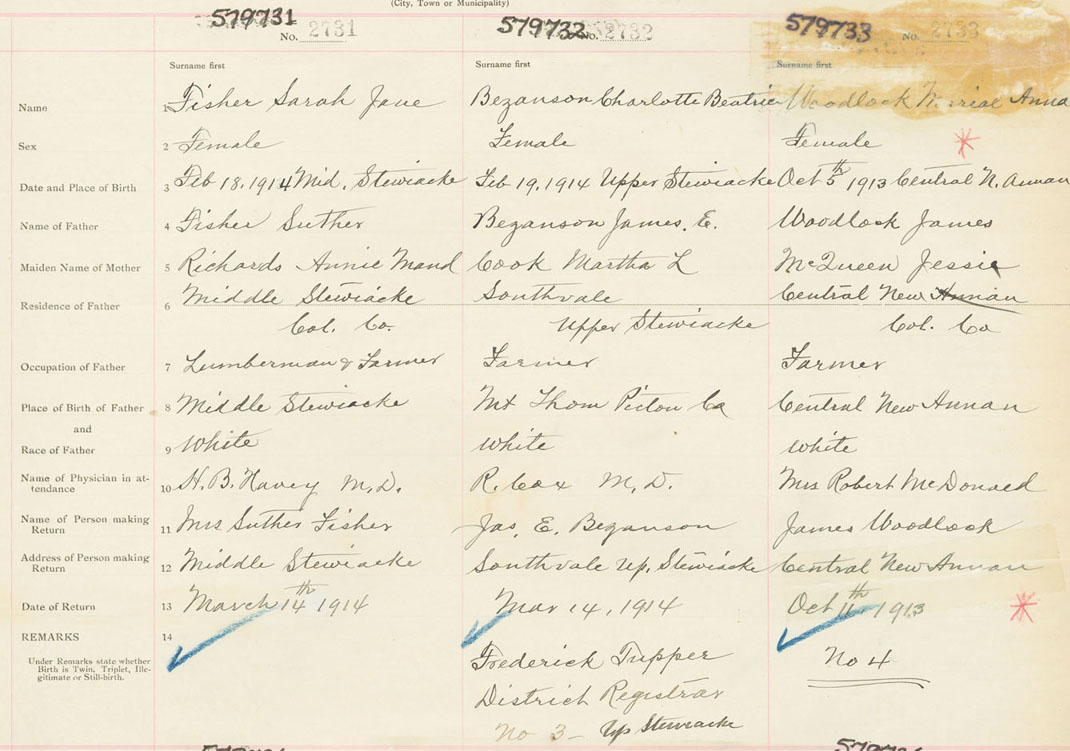 (City, Town or Municipality)
579731 No. 2731 579732 No. 2732 579733 No. 2733
Surname first Surname first Surname first
Name 1 Fisher Sarah Jane Bezanson Charlotte Beatrice Woodlock Anna
Sex 2 Female Female Female
Date and Place of Birth 3 Feb 18, 1914 Mid. Stewiacke Feb 19, 1914 Upper Stewiacke Oct 5th 1913 Central N. Annan
Name of Father 4 Fisher Suther Bezanson James. E. Woodlock James
Maiden Name of Mother 5 Richards Annie Maud Cook Martha L McQueen Jessie
Residence of Father 6 Middle Stewiacke Southvale Central New Annan
Col. Co. Upper Stewiacke Col. Co
Occupation of Father 7 Lumberman & Farmer Farmer Farmer
Place of Birth of Father 8 Middle Stewiacke Mt Thom Pictou Co Central New Annan
and
Race of Father 9 White White White
Name of Physician in at-
tendance 10 H. B. Havey M.D. R. Cox M.D. Mrs Robert McDonald
Name of Person making
Return 11 Mrs Suther Fisher Jas. E. Bezanson James Woodlock
Address of Person making
Return 12 Middle Stewiacke Southvale Up. Stewiacke Central New Annan
Date of Return 13 March 14th 1914 Mar 14, 1914 Oct 11th 1913
REMARKS 14
Under Remarks state whether
Birth is Twin, Triplet, Ille-
gitimate or Still-birth.
Frederick Tupper No 4
District Registrar
No 3 - Up Stewiacke